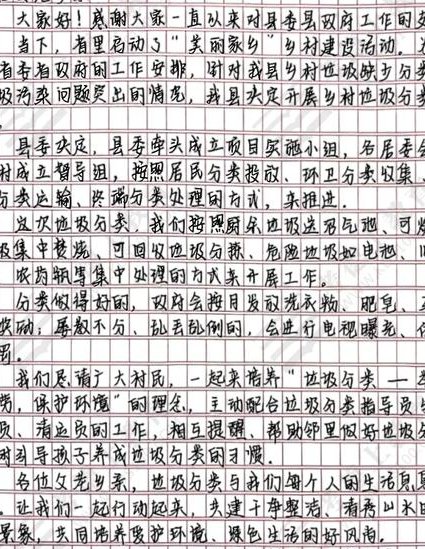 大家好！感谢大家一直以来对县委县政府工作的支
当下，省里启动了“美丽家乡”乡村建设活动。为
省委省政府的工作安排，针对我县乡村垃圾缺少分类
圾污染问题突出的情况，我县决定开展乡村垃圾分类
。
县委决定，县委牵头成立项目实施小组，各居委会
村成立督导组，按照居民分类投放、环卫分类收集、
分类运输、终端分类处理的方式，来推进。
这次垃圾分类，我们按照厨余垃圾送沼气池、可燃
圾集中焚烧、可回收垃圾分拣、危险垃圾如电池、
农药瓶等集中处理的方式来开展工作。
分类做得好的，政府会按月发放洗衣粉、肥皂、
奖励；屡教不分、乱丢乱倒的，会进行电视曝光、
罚。
我们恳请广大村民，一起来培养“垃圾分类——
劳，保护环境”的理念，主动配合垃圾分类指导员
员、清运员的工作，相互提醒、帮助邻里做好垃圾分
时引导孩子养成垃圾分类的习惯。
各位父老乡亲，垃圾分类与我们每个人的生活息息
。让我们一起行动起来，共建干净整洁、青青山水的
景象，共同培养爱护环境、绿色生活的好风尚。